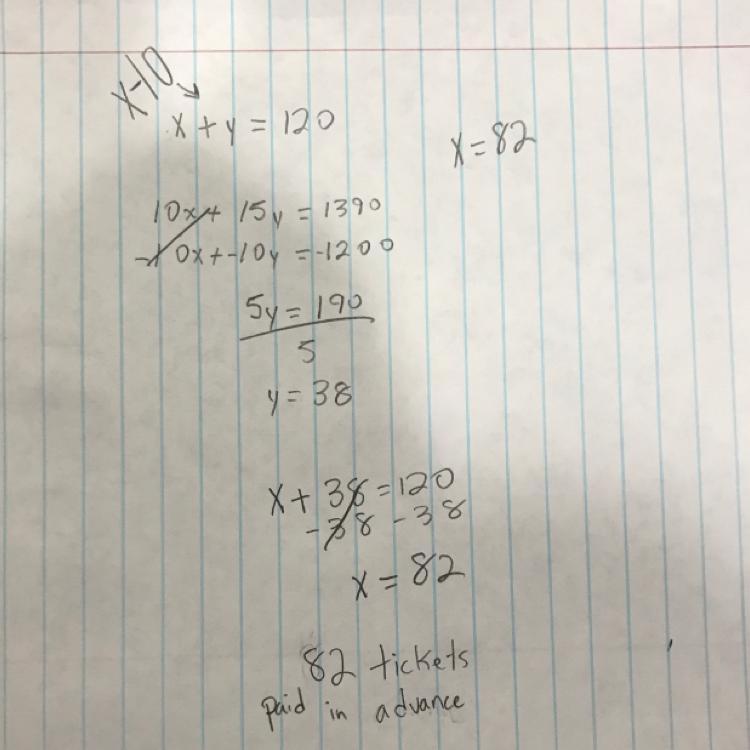 x-10
x + y = 120
x = 82
10x + 15y = 1390
-10x + -10y = -1200
5y = 190
5
y = 38
x + 38 = 120
-38 -38
x = 82
82 tickets
paid in advance